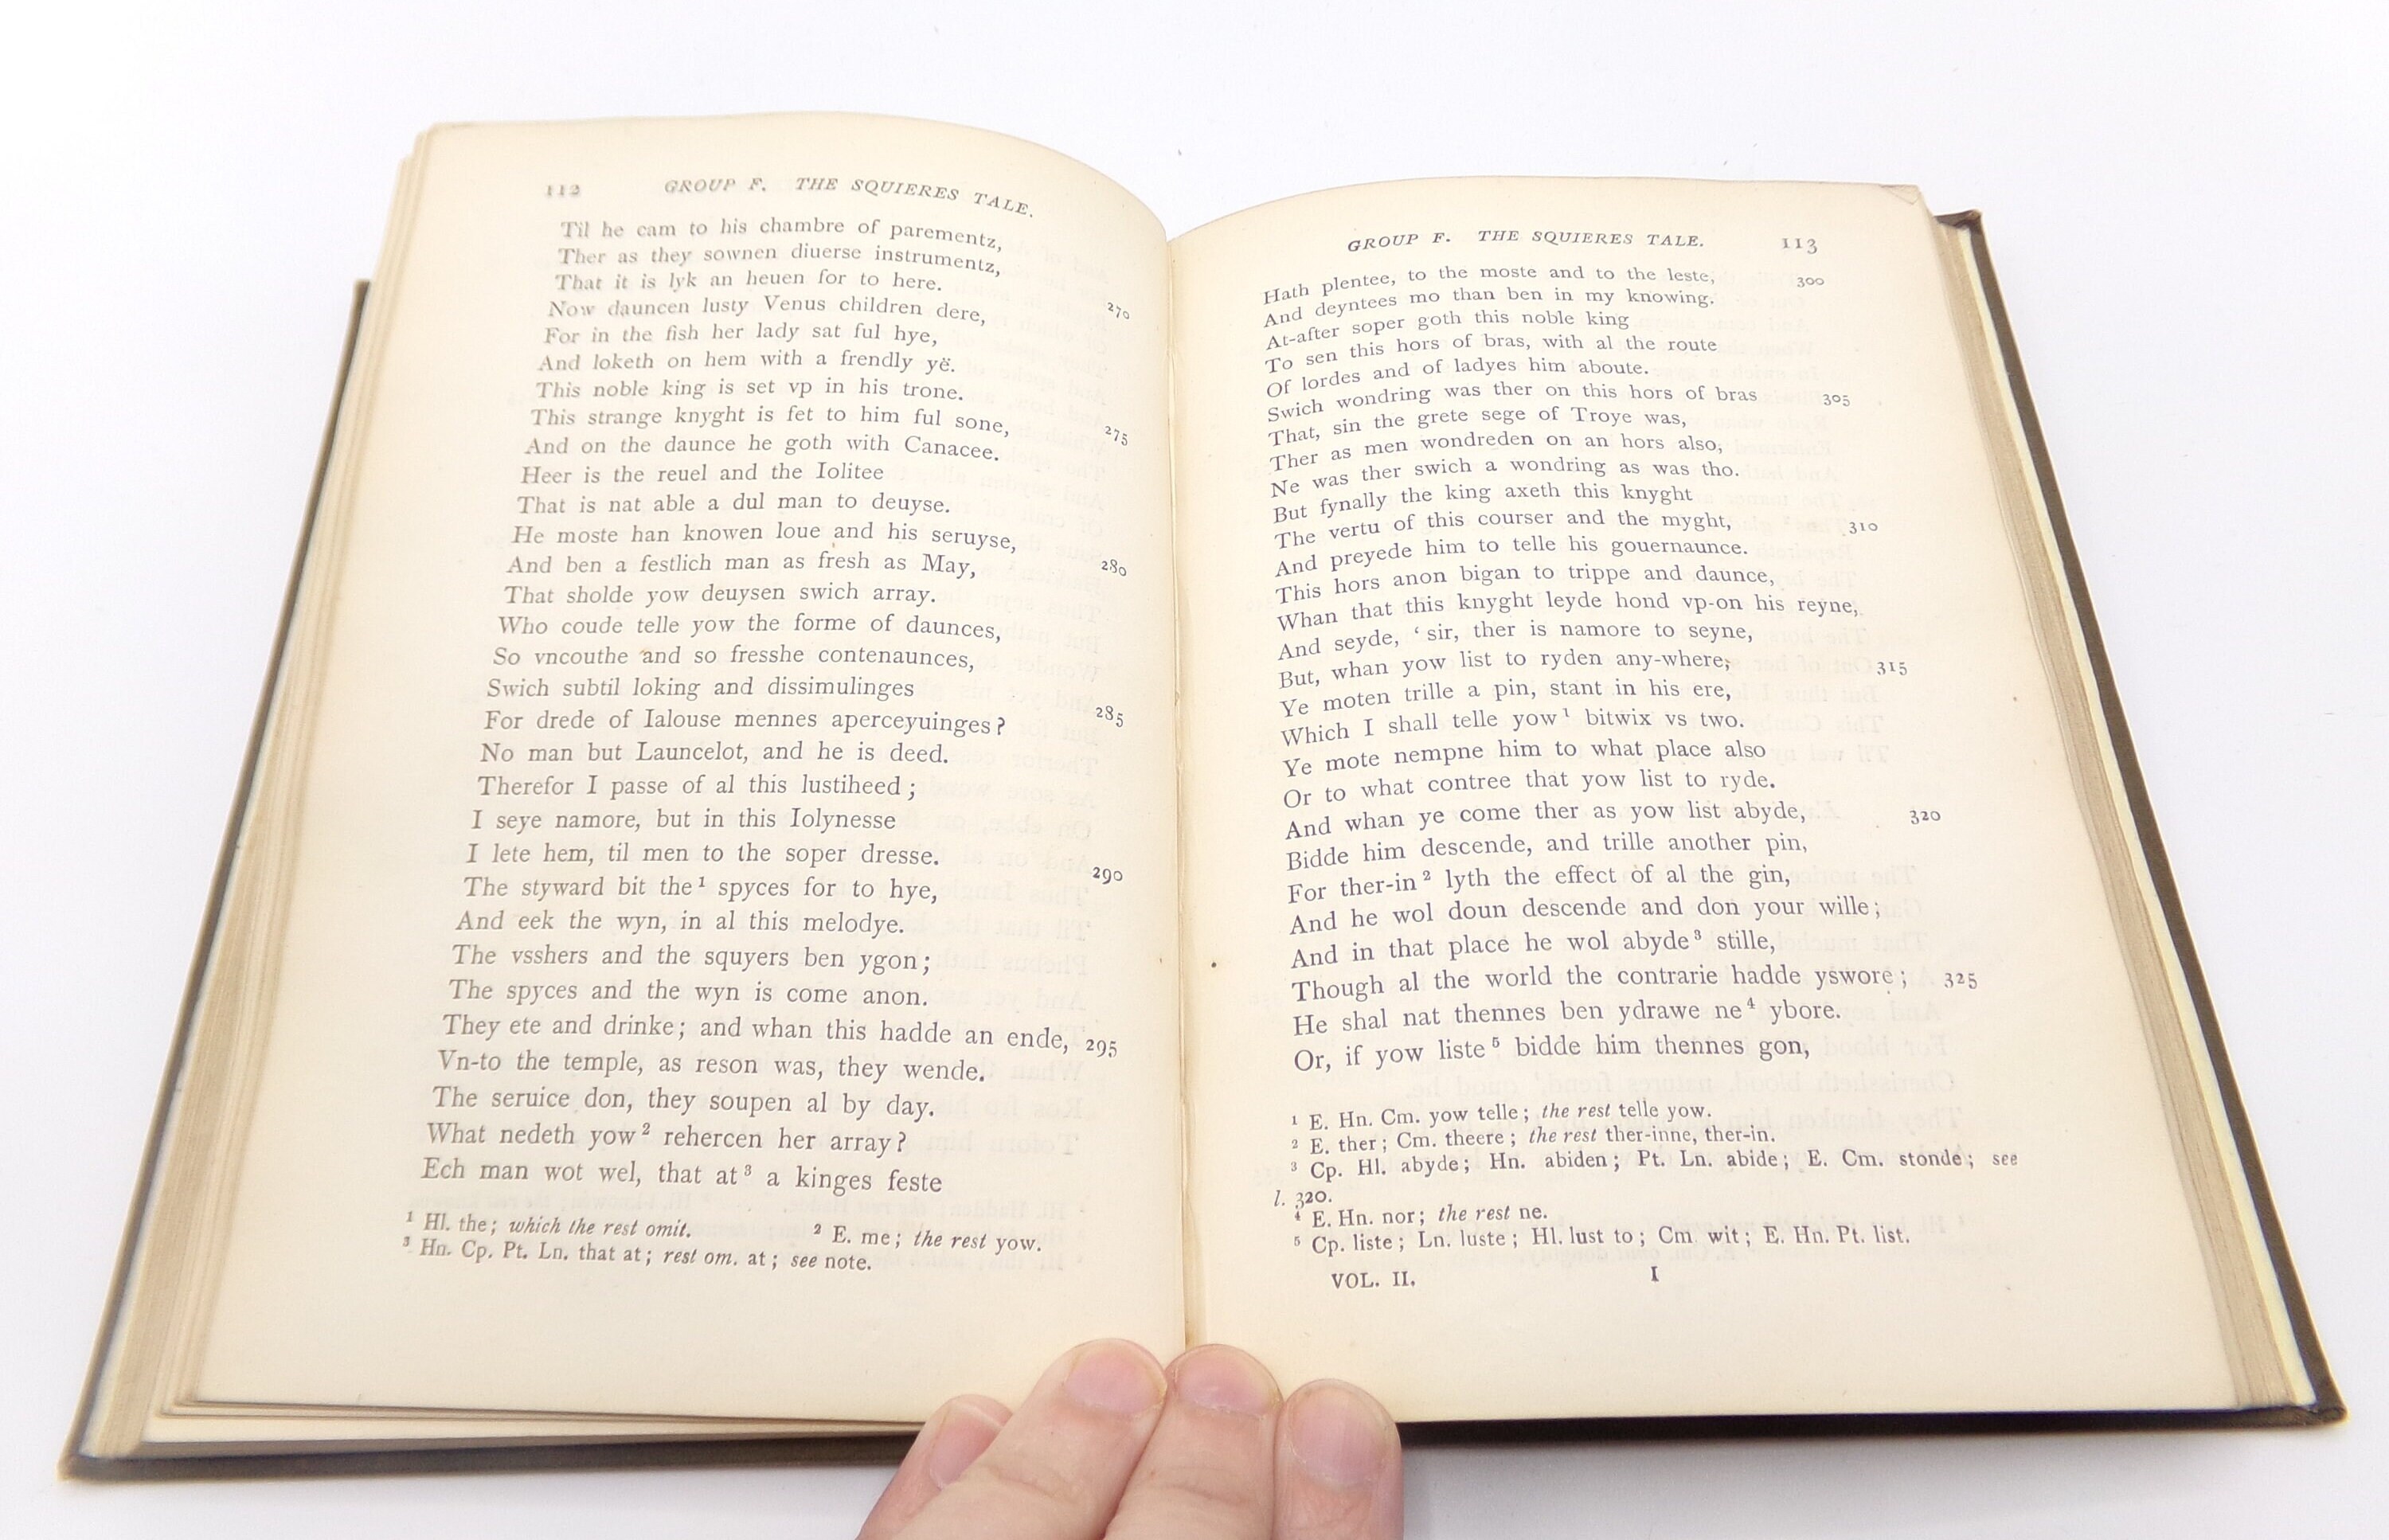 112 GROUP F. THE SQUIERES TALE.
Til he cam to his chambre of parementz,
Ther as they sownen diuerse instrumentz,
That it is lyk an heuen for to here.
Now dauncen lusty Venus children dere,
270
For in the fish her lady sat ful hye,
And loketh on hem with a frendly yë.
This noble king is set vp in his trone.
This strange knyght is fet to him ful sone,
275
And on the daunce he goth with Canacee.
Heer is the reuel and the Iolitee
That is nat able a dul man to deuyse.
He moste han knowen loue and his seruyse,
And ben a festlich man as fresh as May,
280
That sholde yow deuysen swich array.
Who coude telle yow the forme of daunces,
So vncouthe and so fresshe contenaunces,
Swich subtil loking and dissimulinges
For drede of Ialouse mennes aperceyuinges?
285
No man but Launcelot, and he is deed.
Therefor I passe of al this lustiheed;
I seye namore, but in this Iolynesse
I lete hem, til men to the soper dresse.
290
The styward bit the¹ spyces for to hye,
And eek the wyn, in al this melodye.
The vsshers and the squyers ben ygon;
The spyces and the wyn is come anon.
They ete and drinke; and whan this hadde an ende, 295
Vn-to the temple, as reson was, they wende.
The seruice don, they soupen al by day.
What nedeth yow² rehercen her array?
Ech man wot wel, that at³ a kinges feste
¹ Hl. the; which the rest omit. ² E. me; the rest yow.
³ Hn. Cp. Pt. Ln. that at; rest om. at; see note.
GROUP F. THE SQUIERES TALE. 113
Hath plentee, to the moste and to the leste, 300
And deyntees mo than ben in my knowing.
At-after soper goth this noble king
To sen this hors of bras, with al the route
Of lordes and of ladyes him aboute.
Swich wondring was ther on this hors of bras 305
That, sin the grete sege of Troye was,
Ther as men wondreden on an hors also,
Ne was ther swich a wondring as was tho.
But fynally the king axeth this knyght
The vertu of this courser and the myght, 310
And preyede him to telle his gouernaunce.
This hors anon bigan to trippe and daunce,
Whan that this knyght leyde hond vp-on his reyne,
And seyde, ‘sir, ther is namore to seyne,
But, whan yow list to ryden any-where, 315
Ye moten trille a pin, stant in his ere,
Which I shall telle yow¹ bitwix vs two.
Ye mote nempne him to what place also
Or to what contree that yow list to ryde.
And whan ye come ther as yow list abyde, 320
Bidde him descende, and trille another pin,
For ther-in² lyth the effect of al the gin,
And he wol doun descende and don your wille;
And in that place he wol abyde³ stille,
Though al the world the contrarie hadde yswore; 325
He shal nat thennes ben ydrawe ne⁴ ybore.
Or, if yow liste⁵ bidde him thennes gon,
¹ E. Hn. Cm. yow telle; the rest telle yow.
² E. ther; Cm. theere; the rest ther-inne, ther-in.
³ Cp. Hl. abyde; Hn. abiden; Pt. Ln. abide; E. Cm. stonde; see
l. 320.
⁴ E. Hn. nor; the rest ne.
⁵ Cp. liste; Ln. luste; Hl. lust to; Cm. wit; E. Hn. Pt. list.
VOL. II. I